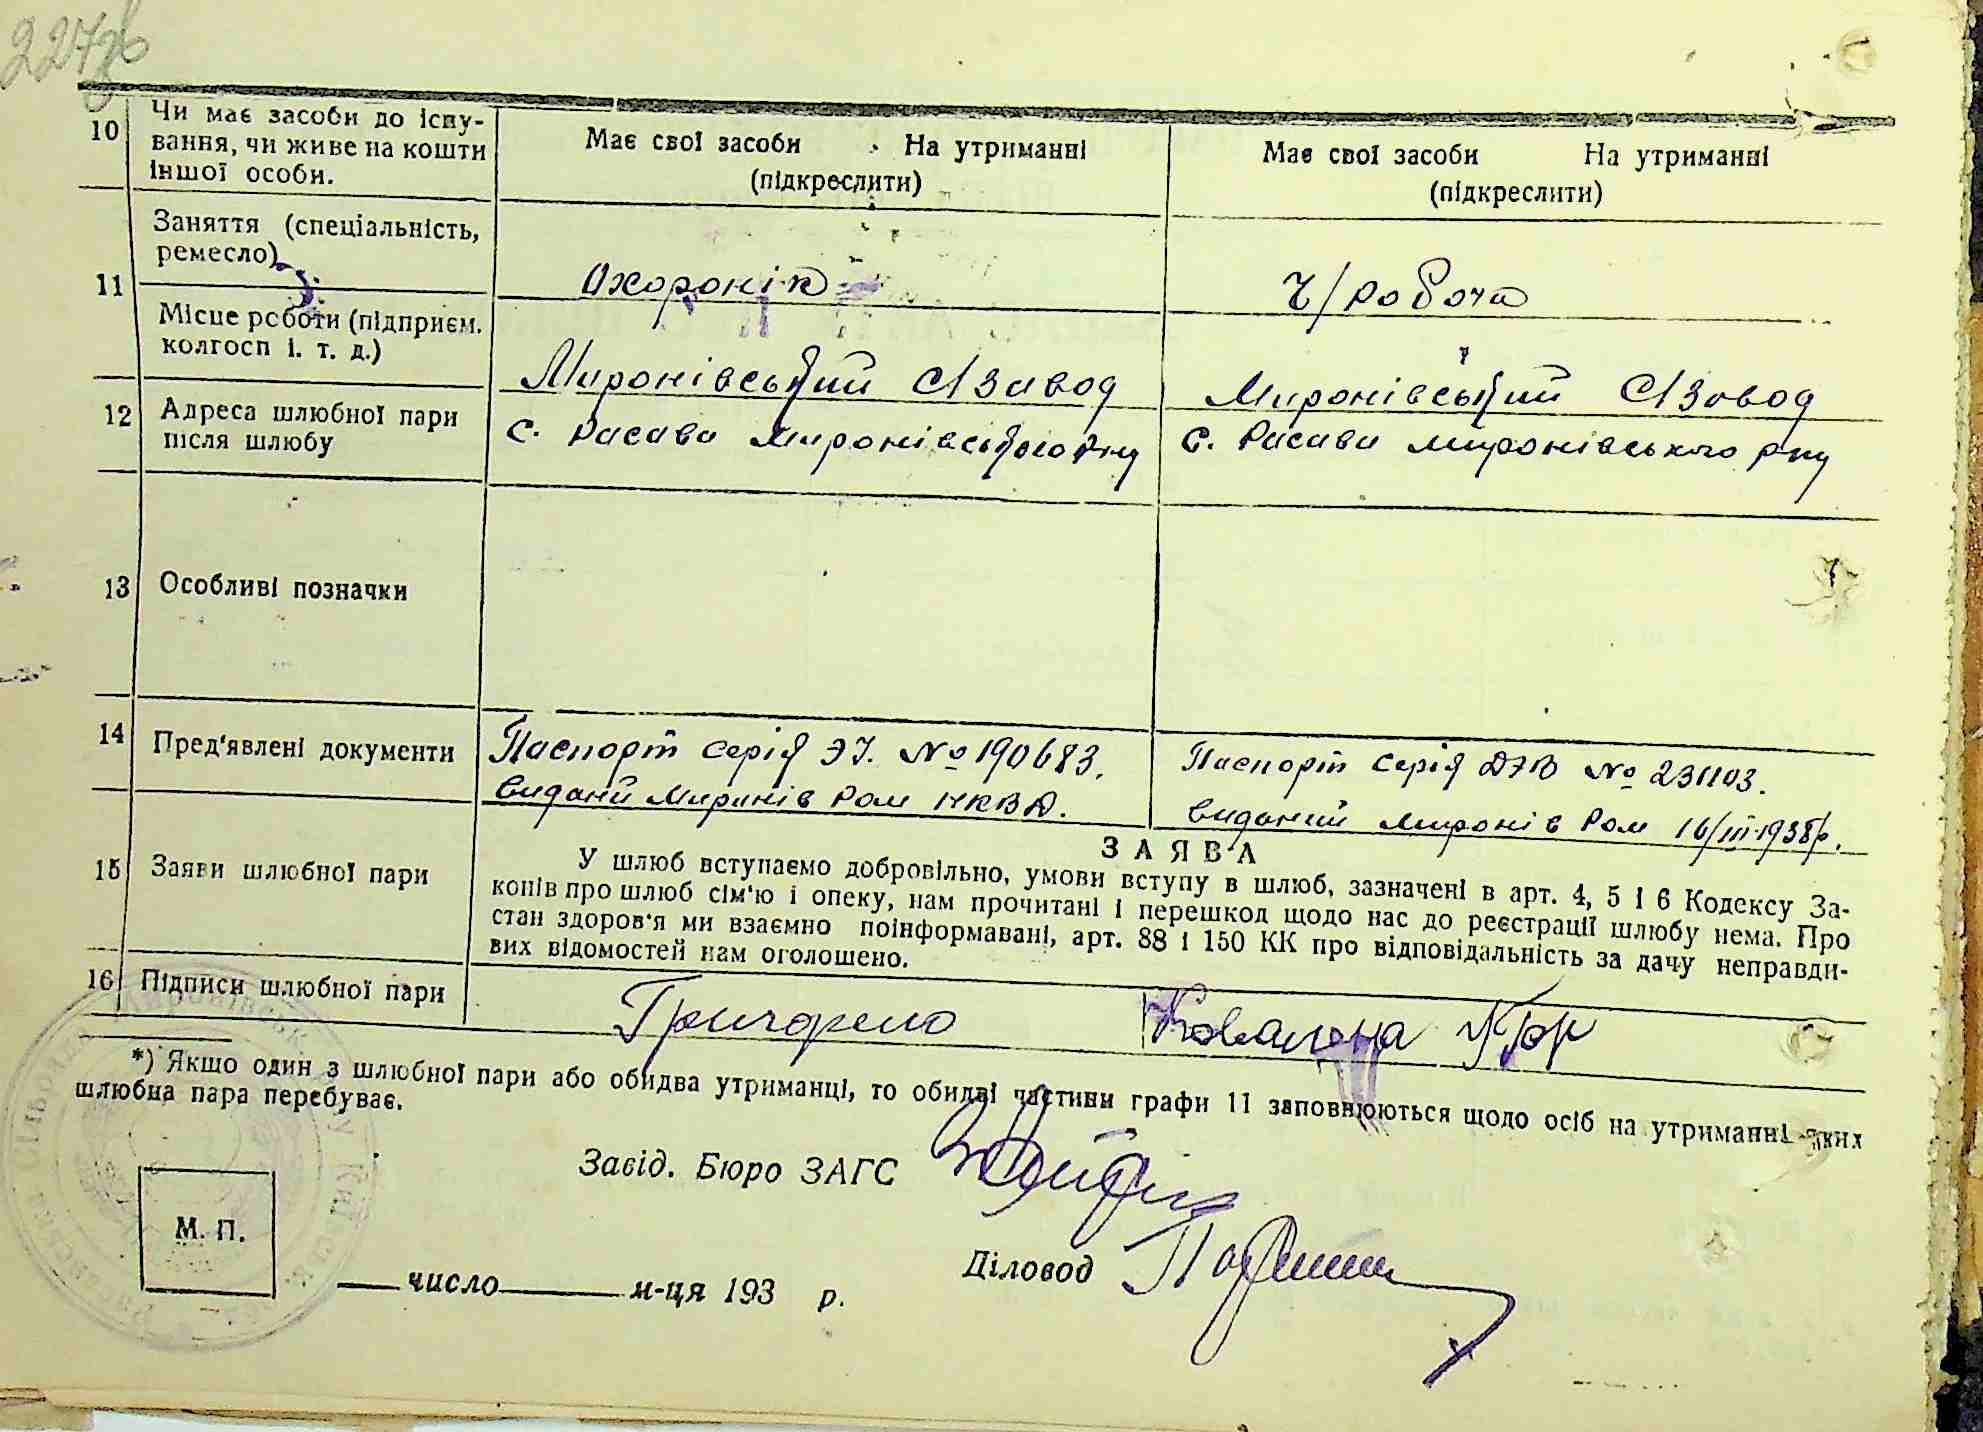 227зв
10 Чи має засоби до існу-
вання, чи живе на кошти
іншої особи.
Має свої засоби На утриманні
(підкреслити)
Має свої засоби На утриманні
(підкреслити)
11 Заняття (спеціальність,
ремесло)
Охоронік
Ч/робоча
Місце роботи (підприєм.
колгосп і. т. д.)
Миронівський С/Завод
Миронівський С/Завод
12 Адреса шлюбної пари
після шлюбу
с. Расава Миронівського р-ну
с. Расава Миронівського р-ну
13 Особливі позначки
14 Пред'явлені документи
Паспорт серія ЭУ. № 190683.
Виданий Миронів Ром НКВД.
Паспорт серія ДЭВ № 231103.
виданий Миронів Ром 16/III-1938р.
15 Заяви шлюбної пари
ЗАЯВА
У шлюб вступаємо добровільно, умови вступу в шлюб, зазначені в арт. 4, 5 і 6 Кодексу За-
конів про шлюб сім'ю і опеку, нам прочитані і перешкод щодо нас до реєстрації шлюбу нема. Про
стан здоров'я ми взаємно поінформавані, арт. 88 і 150 КК про відповідальність за дачу неправди-
вих відомостей нам оголошено.
16 Підписи шлюбної пари
*) Якщо один з шлюбної пари або обидва утриманці, то обидві частини графи 11 заповнюються щодо осіб на утриманні яких
шлюбна пара перебуває.
Завід. Бюро ЗАГС
М. П.
Діловод
число м-ця 193 р.